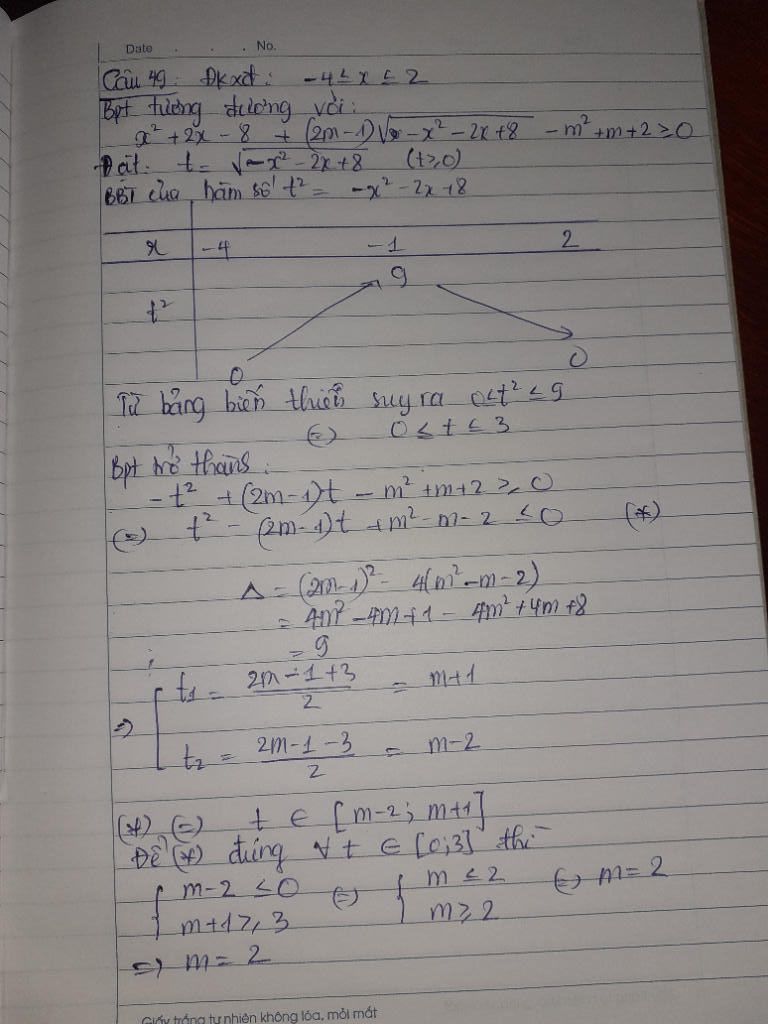 Date . . . No.
Câu 49: Đkxđ: -4 ≤ x ≤ 2
Bpt tương đương với:
x² + 2x - 8 + (2m-1)√-x² - 2x + 8 - m² + m + 2 ≥ 0
Đặt: t = √-x² - 2x + 8 (t ≥ 0)
BBT của hàm số t² = -x² - 2x + 8
x -4 -1 2
9
t²
0 0
Từ bảng biến thiên suy ra 0 ≤ t² ≤ 9
(=) 0 ≤ t ≤ 3
Bpt trở thành:
-t² + (2m-1)t - m² + m + 2 ≥ 0
(=) t² - (2m-1)t + m² - m - 2 ≤ 0 (*)
Δ = (2m-1)² - 4(m² - m - 2)
= 4m² - 4m + 1 - 4m² + 4m + 8
= 9
=> [ t1 = (2m-1+3)/2 = m+1
t2 = (2m-1-3)/2 = m-2
(*) (=) t ∈ [m-2; m+1]
Để (*) đúng ∀ t ∈ [0;3] thì
{ m-2 ≤ 0 (=) { m ≤ 2 (=) m = 2
m+1 ≥ 3 m ≥ 2
=> m = 2
Giấy trắng tự nhiên không lóa, mỏi mắt